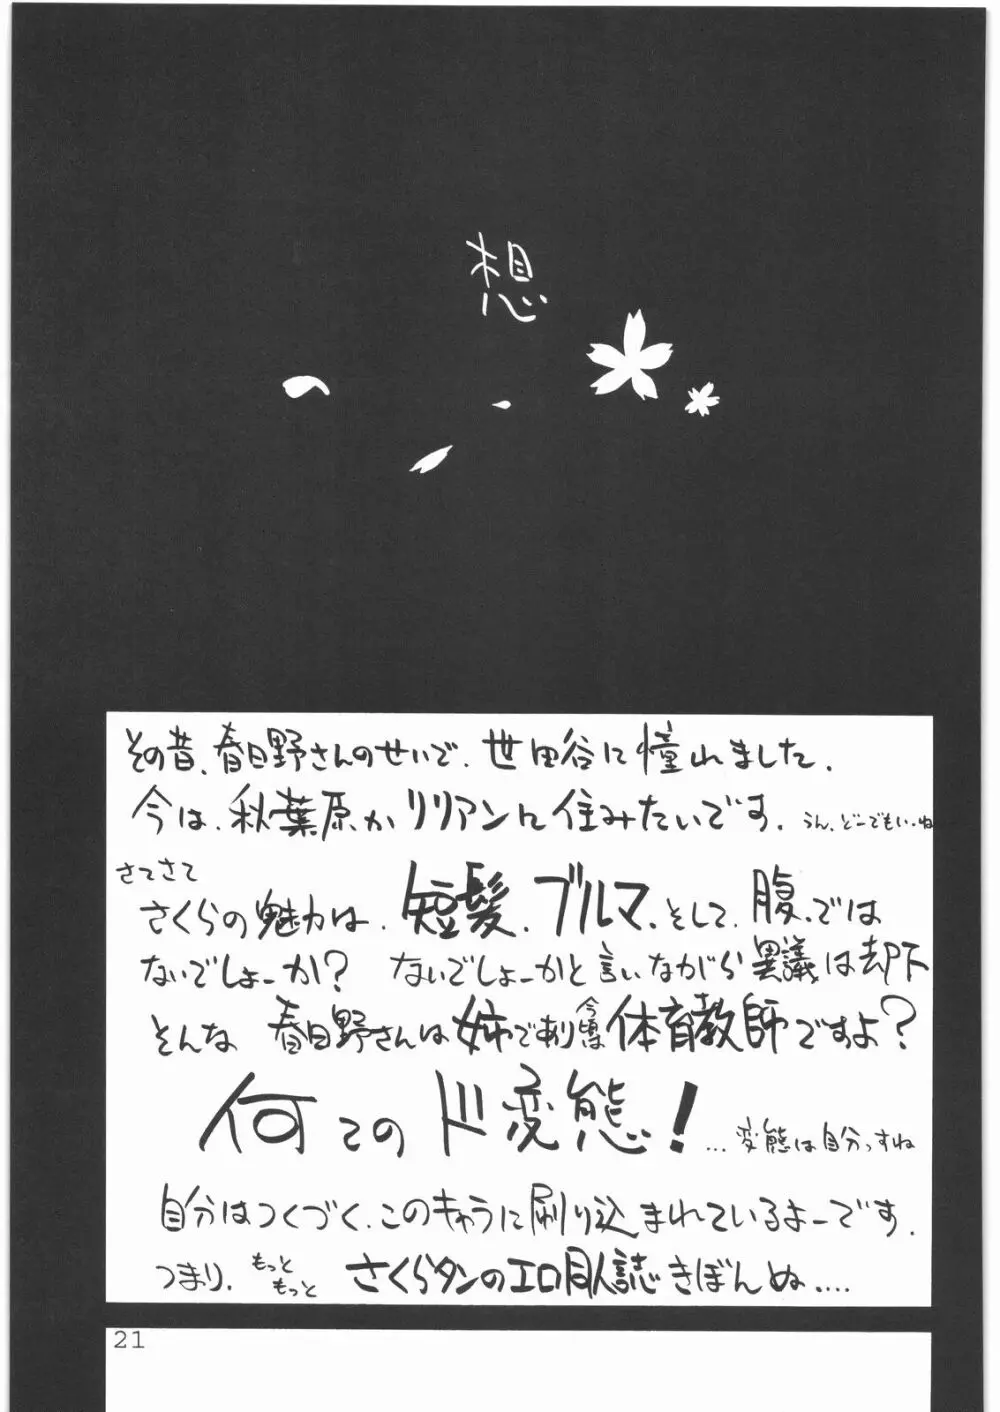 想
その昔、春日野さんのせいで、世田谷に憧れました。
今は、秋葉原かリリアンに住みたいです。うん、どーでもいーね
さてさて
さくらの魅力は、短髪、ブルマ、そして、腹、では
ないでしょーか?ないでしょーかと言いながら異議は却下
そんな 春日野さんは姉であり今頃は体育教師ですよ?
何てのド変態!…変態は自分っすね
自分はつくづく、このキャラに刷り込まれているよーです。
つまり、もっともっと さくらタンのエロ同人誌きぼんぬ....
21